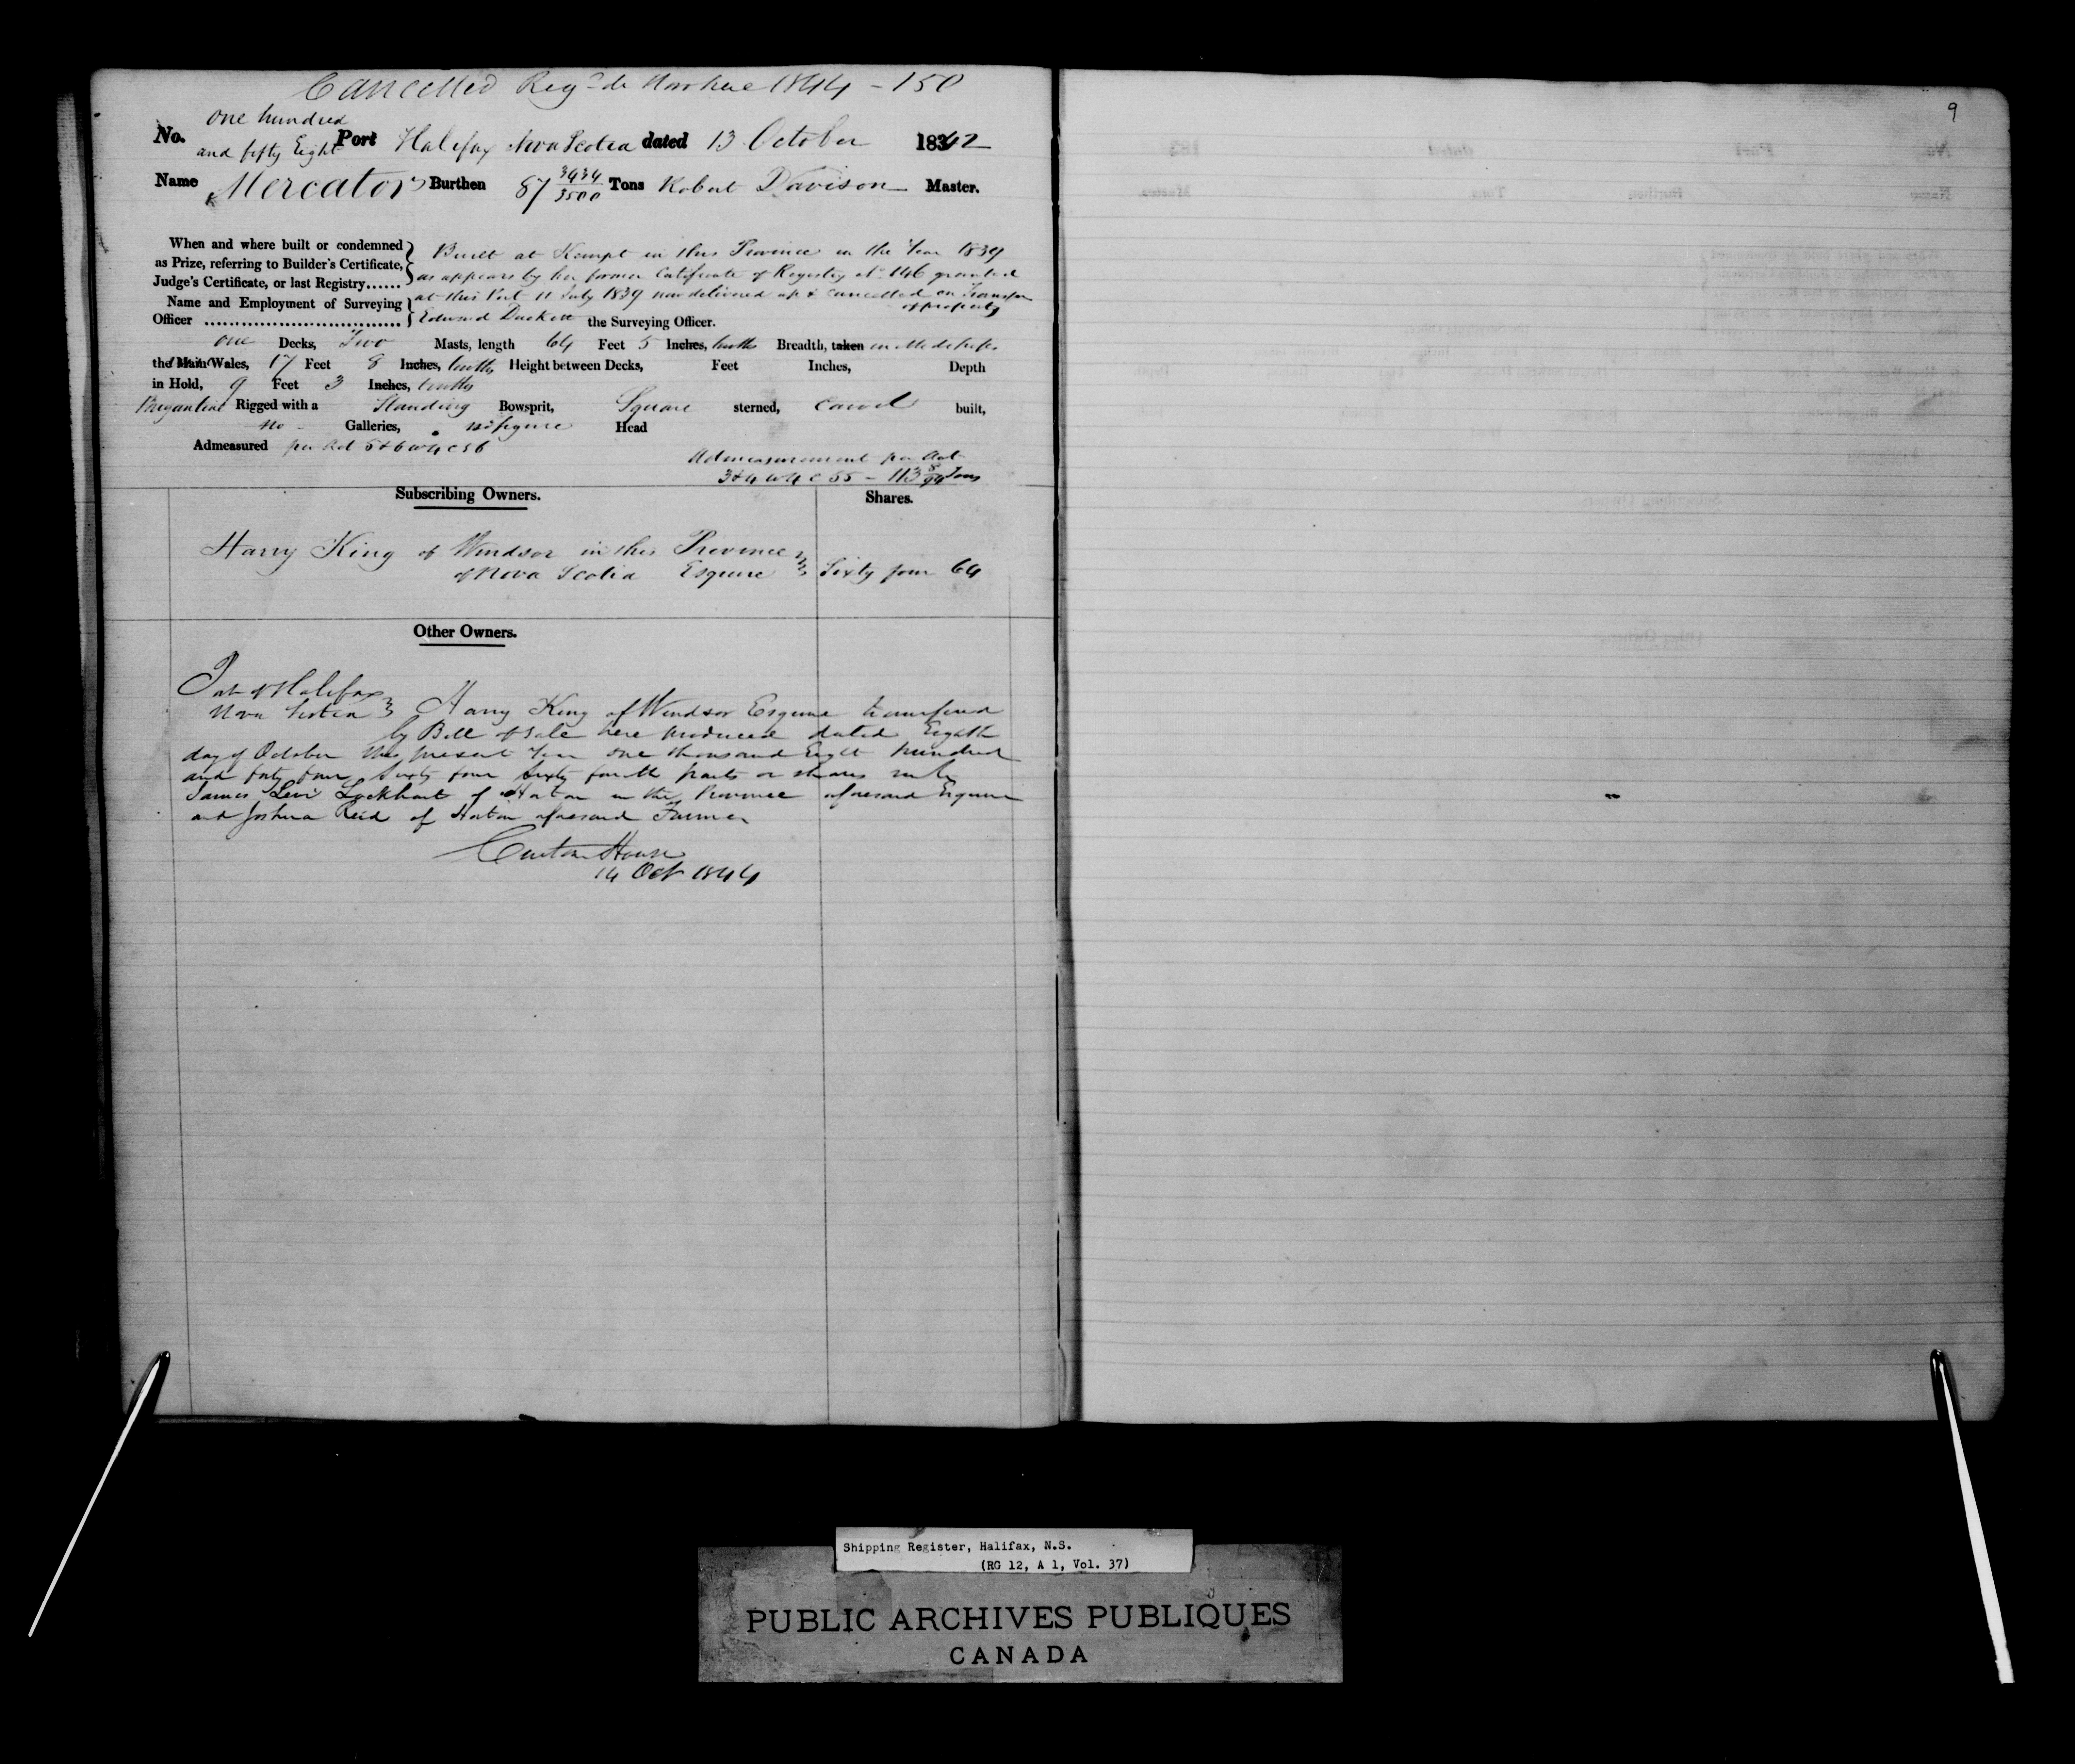 Cancelled Reg^d de 1844 - 150
9
one hundred
No. and fifty Eight Port Halifax Nova Scotia dated 13 October 1842
Name Mercator Burthen 87 3434/3500 Tons Robert Davison Master.
When and where built or condemned as Prize, referring to Builder's Certificate, Judge's Certificate, or last Registry......
Built at Kempt in this Province in the Year 1839
as appears by her former Certificate of Registry No 146 granted
at this Port 11 July 1839 now delivered up & cancelled on Transfer
of property
Name and Employment of Surveying Officer
Edward Duckett the Surveying Officer.
one Decks, Two Masts, length 64 Feet 5 Inches, tenths Breadth, taken in Midships
the Main Wales, 17 Feet 8 Inches, tenths Height between Decks, Feet Inches, Depth
in Hold, 9 Feet 3 Inches, tenths
Brigantine Rigged with a Standing Bowsprit, Square sterned, Carvel built,
no Galleries, no figure Head
Admeasured per Act 5 & 6 W 4 C 56
Admeasurement per Act
3 & 4 W 4 C 55 - 113 8/94 Tons
Subscribing Owners. Shares.
Harry King of Windsor in this Province
of Nova Scotia Esquire Sixty four 64
Other Owners.
Port of Halifax
Nova Scotia Harry King of Windsor Esquire transferred
by Bill of Sale here produced dated Eighth
day of October this present Year one thousand Eight hundred
and forty four Sixty four Sixty fourth parts or shares unto
James Levi Lockhart of Horton in the Province aforesaid Esquire
and Joshua Reid of Horton aforesaid Farmer
Custom House
14 Oct 1844
Shipping Register, Halifax, N.S.
(RG 12, A 1, Vol. 37)
PUBLIC ARCHIVES PUBLIQUES
CANADA